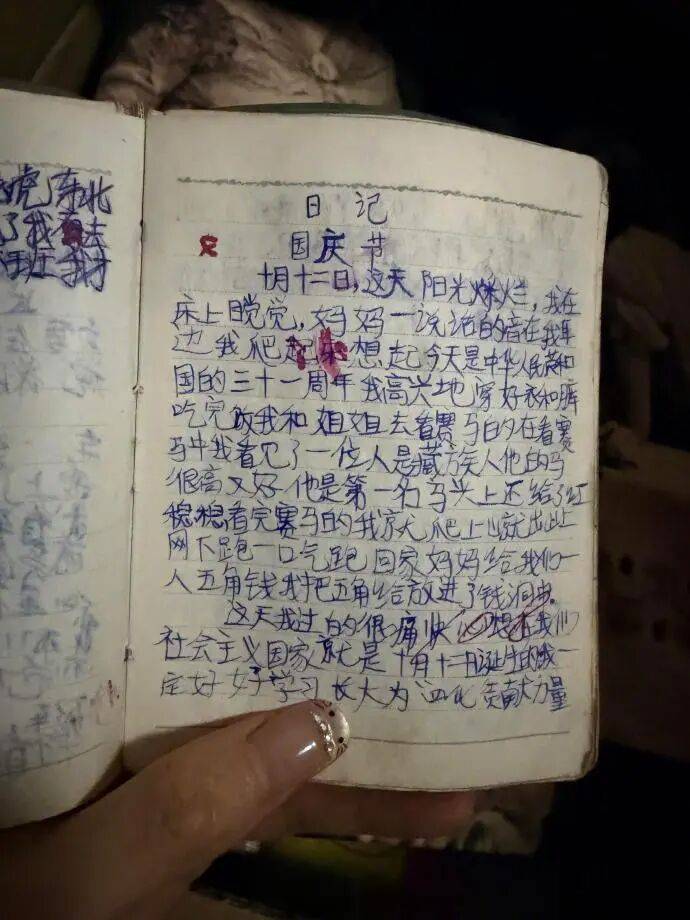 虎东北
了我去
日记
国庆节
十月十二日,这天阳光灿烂,我在
床上睡觉,妈妈一说话的音在我耳
边我爬起来想起今天是中华人民共和
国的三十一周年我高兴地穿好衣和裤
吃完饭我和姐姐去看赛马的在看赛
马中我看见了一位人是藏族人他的马
很高又好他是第一名马头上还给了红
看完赛马的我就爬上
网下跑一口气跑回家妈妈给我们一
人五角钱我把五角给放进了钱洞
这天我过的很痛快我们
社会主义国家就是十月十二诞生的我一
定好好学习长大为四化贡献力量